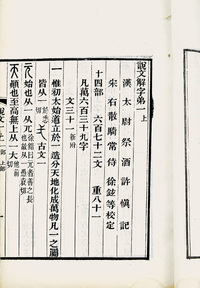 說文解字弟一 上
漢太尉祭酒許慎記
宋右散騎常侍徐鉉等校定
十四部 六百七十二文 重八十一
凡萬六百三十九字
文三十一 新附
一 惟初太始道立於一造分天地化成萬物凡一之屬
皆从一 於悉切
古文一
元 始也从一从兀 徐鍇曰元者善之長也故从一 愚袁切
天 顛也至高無上从一大 他前切